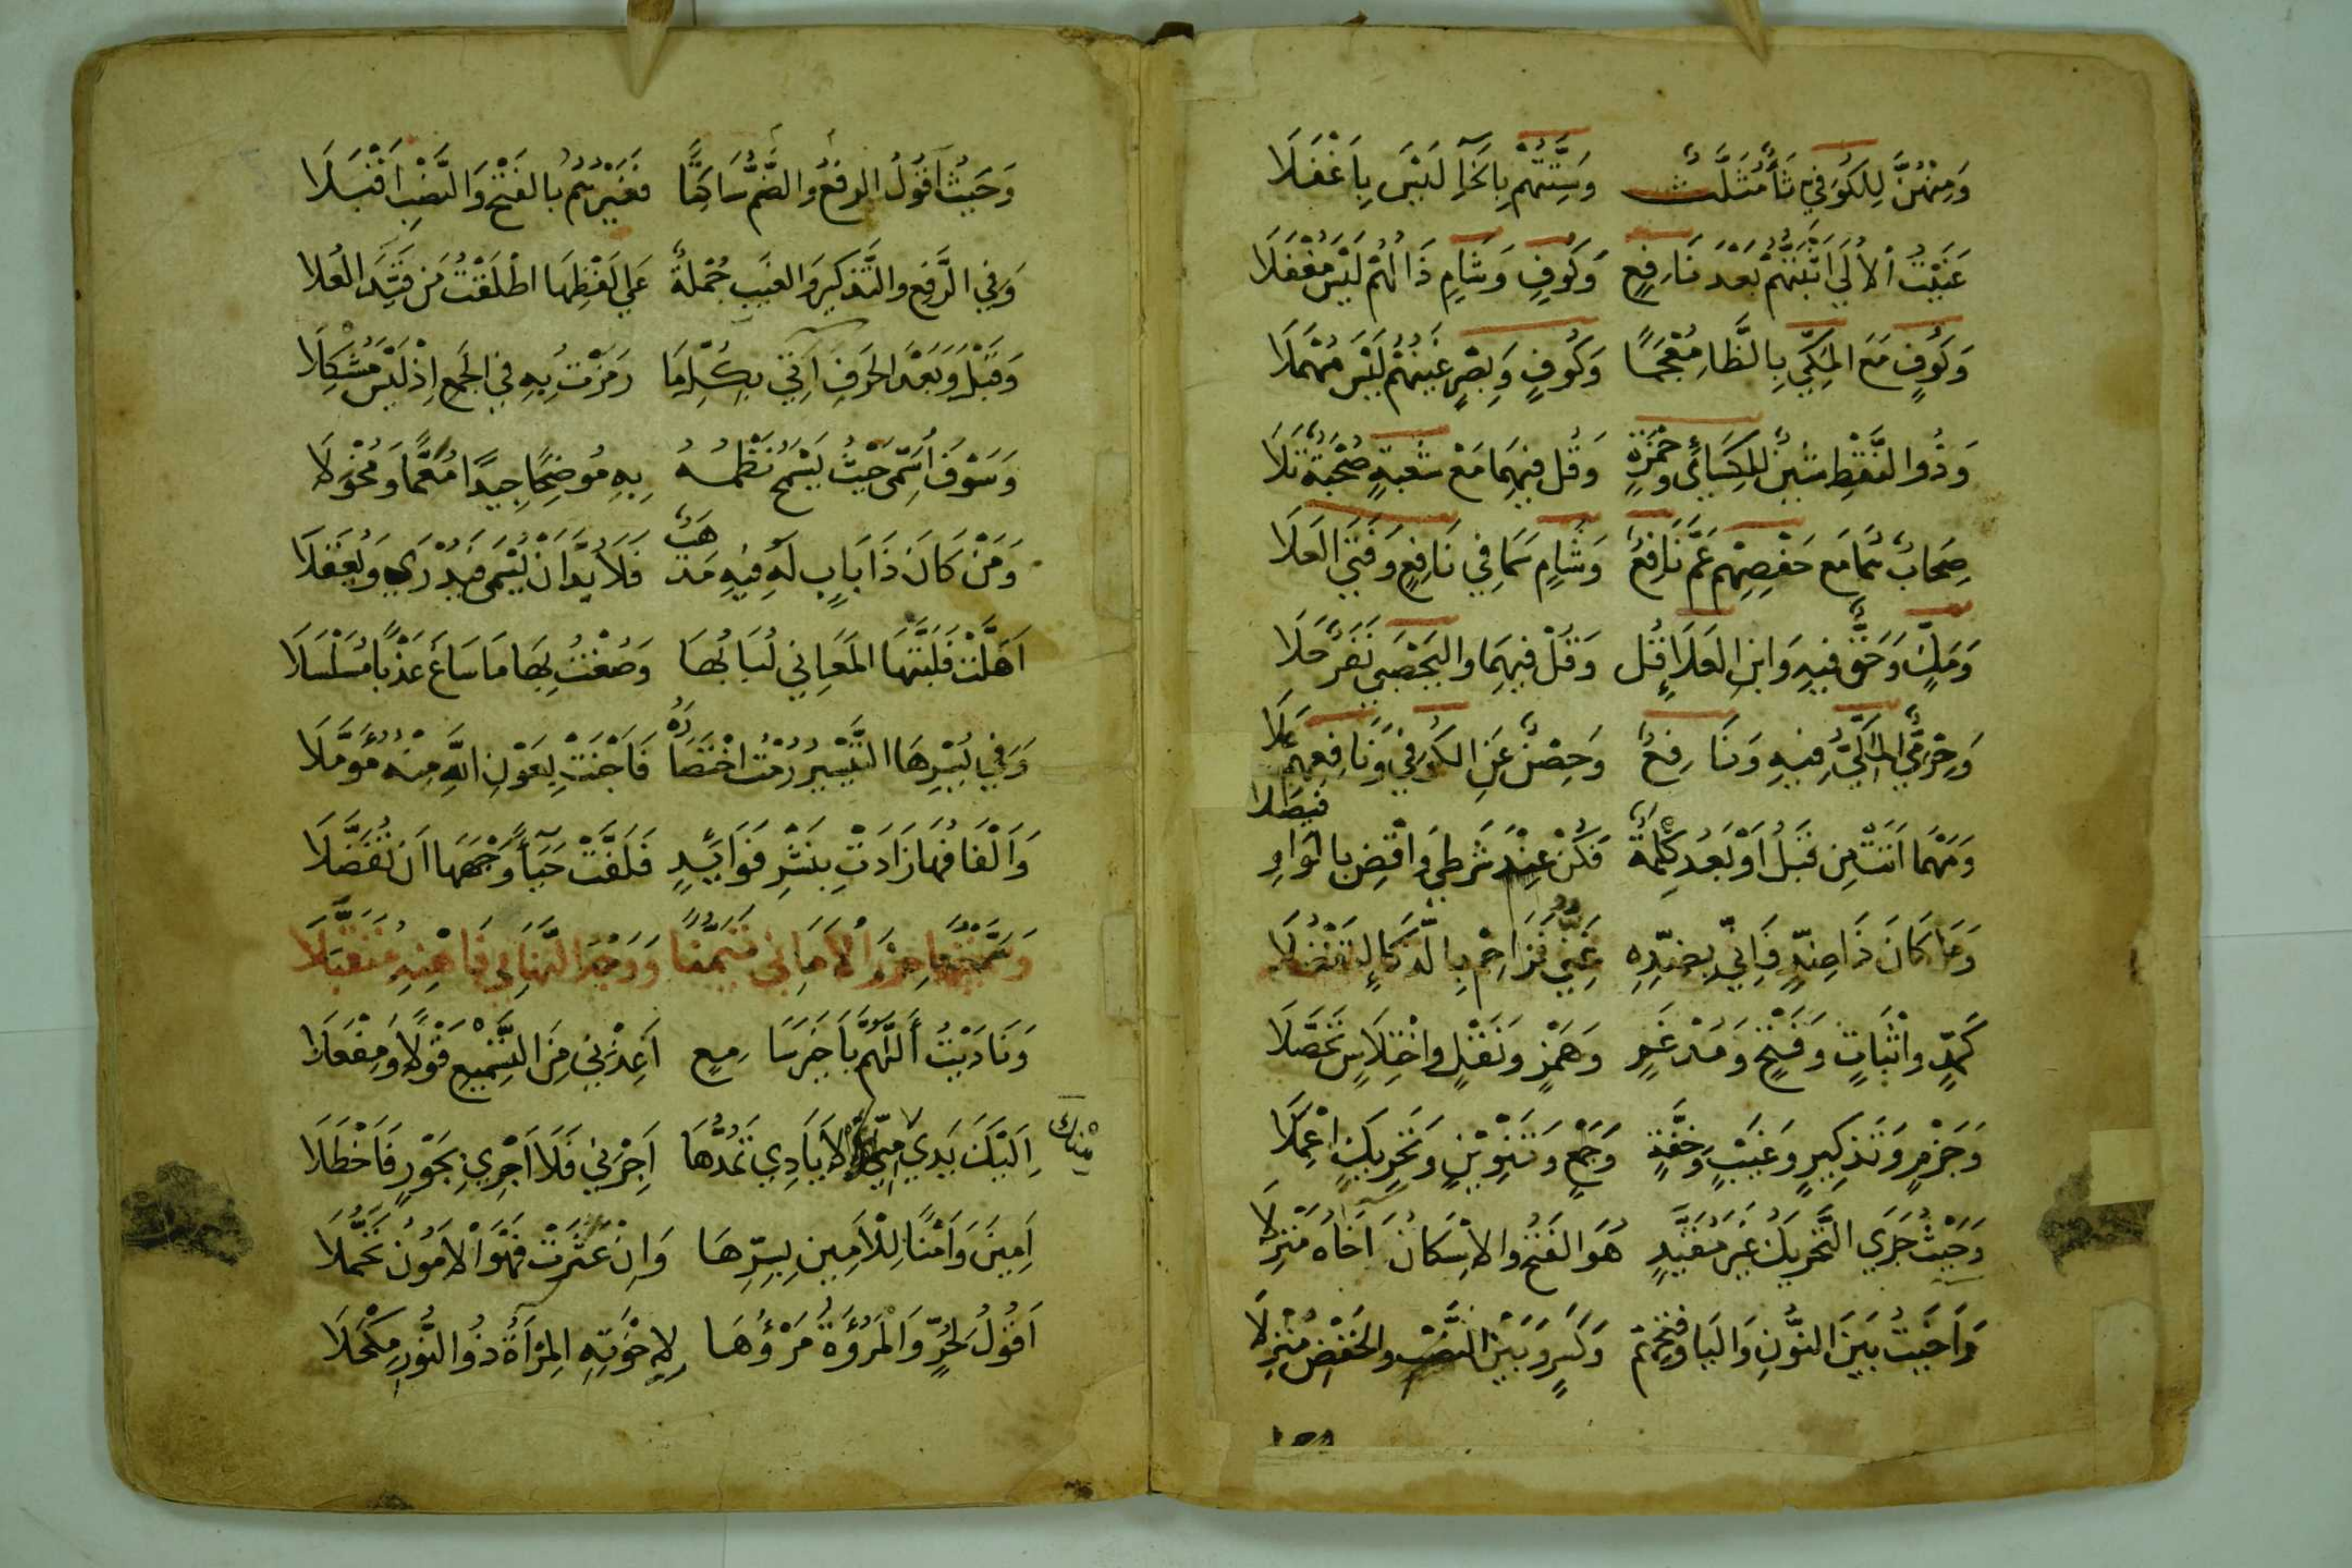 وَمِنْهُنَّ لِلْكُوفِيِّ ثَاءٌ مُثَلَّثٌ وَسِتَّتُهُمْ بِالْخَاءِ لَيْسَ بِأَغْفَلَا
عَنَيْتُ الْأُلَى أَثْبَتُّهُمْ بَعْدَ نَافِعٍ وَكُوفٍ وَشَامٍ ذَالُهُمْ لَيْسَ مُغْفَلَا
وَكُوفٍ مَعَ الْمَكِّيِّ بِالظَّاءِ مُعْجَمًا وَكُوفٍ وَبَصْرٍ غَيْنُهُمْ لَيْسَ مُهْمَلَا
وَذُو النَّقْطِ شِينٌ لِلْكِسَائِي وَحَمْزَةٍ وَقُلْ فِيهِمَا مَعْ شُعْبَةٍ صُحْبَةٌ تَلَا
صِحَابٌ هُمَا مَع حَفْصِهِمْ عَمَّ نَافِعٌ وَشَامٍ سَمَا فِي نَافِعٍ وَفَتَى الْعَلَا
وَمَكٍّ وَحَقٌّ فِيهِ وَابْنِ الْعَلَاءِ قُلْ وَقُلْ فِيهِمَا وَالْيَحْصَبِي نَفَرٌ حَلَا
وَحِرْمِيٌّ الْمَكِّيُّ فِيهِ وَنَافِعٌ وَحِصْنٌ عَنِ الْكُوفِي وَنَافِعِهِمْ عَلَا
وَمَهْمَا أَتَتْ مِن قَبْلُ أَوْ بَعْدُ كِلْمَةٌ فَكُنْ عِنْدَ شَرْطِي وَاقْضِ بِالْوَاوِ فَيْصَلَا
وَمَا كَانَ ذَا ضِدٍّ فَإِنِّي بِضِدِّهِ غَنِيٌّ فَزَاحِمْ بِالذَّكَاءِ لِتَفْضُلَا
كَمَدٍّ وَإِثْبَاتٍ وَفَتْحٍ وَمُدْغَمٍ وَهَمْزٍ وَنَقْلٍ وَاخْتِلَاسٍ تَحَصَّلَا
وَجَزْمٍ وَتَذْكِيرٍ وَغَيْبٍ وَخِفَّةٍ وَجَمْعٍ وَتَنْوِينٍ وَتَحْرِيكٍ اعْمِلَا
وَحَيْثُ جَرَى التَّحْرِيكُ غَيْرَ مُقَيَّدٍ هُوَ الْفَتْحُ وَالْإِسْكَانُ آخَاهُ مَنْزِلَا
وَآخَيْتُ بَيْنَ النُّونِ وَالْيَا وَفَتْحِهِمْ وَكَسْرٍ وَبَيْنَ النَّصْبِ وَالْخَفْضِ مُنْزِلَا
وَحَيْثُ أَقُولُ الرَّفْعُ وَالضَّمُّ سَاكِتًا فَغَيْرُهُمُ بِالْفَتْحِ وَالنَّصْبِ أَقْبَلَا
وَفِي الرَّفْعِ وَالتَّذْكِيرِ وَالْغَيْبِ جُمْلَةٌ عَلَى لَفْظِهَا أَطْلَقْتُ مَنْ قَيَّدَ الْعُلَا
وَقَبْلَ وَبَعْدَ الْحَرْفِ آتِي بِكُلِّ مَا رَمَزْتُ بِهِ فِي الْجَمْعِ إِذْ لَيْسَ مُشْكِلَا
وَسَوْفَ أُسَمِّي حَيْثُ يَسْمَحُ نَظْمُهُ بِهِ مُوضِحًا جِيدًا مُعَمًّا وَمُخْوَلَا
وَمَنْ كَانَ ذَا بَابٍ لَهُ فِيهِ مَذْهَبٌ فَلَابُدَّ أَنْ يُسْمَى فَيُدْرَى وَيُعْقَلَا
أَهَلَّتْ فَلَبَّتْهَا الْمَعَانِي لُبَابُهَا وَصُغْتُ بِهَا مَا سَاغَ عَذْبًا مُسَلْسَلَا
وَفِي يُسْرِهَا التَّيْسِيرُ رُمْتُ اخْتِصَارَهُ فَأَجْنَتْ بِعَوْنِ اللَّهِ مِنْهُ مُؤَمَّلَا
وَأَلْفَافُهَا زَادَتْ بِنَشْرِ فَوَائِدٍ فَلَفَّتْ حَيَاءً وَجْهَهَا أَنْ تُفَضَّلَا
وَسَمَّيْتُهَا حِرْزَ الْأَمَانِي تَيَمُّنًا وَوَجْهَ التَّهَانِي فَاهْنِهِ مُتَقَبِّلَا
وَنَادَيْتُ أَللَّهُمَّ يَا خَيْرَ سَامِعٍ أَعِذْنِي مِنَ التَّسْمِيعِ قَوْلًا وَمِفْعَلَا
إِلَيْكَ يَدِي مِنْكَ الْأَيَادِي تَمُدُّهَا أَجِرْنِي فَلَا أَجْرِي بِجَوْرٍ فَأَخْطَلَا
أَمِينَ وَأَمْنًا لِلْأَمِينِ بِسِرِّهَا وَإِنْ عَثَرَتْ فَهْوَ الْأَمُونُ تَحَمُّلَا
أَقُولُ لِحُرٍّ وَالْمُرُوءَةُ مَرْؤُهَا لِإِخْوَتِهِ الْمِرْآةُ ذُو النُّورِ مِكْحَلَا